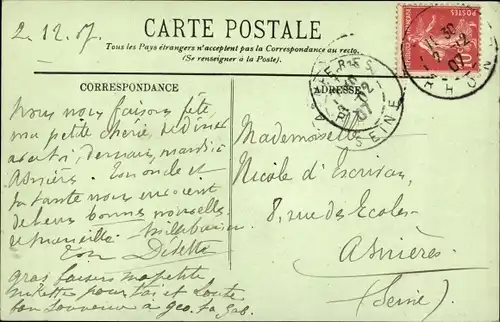 2.12.07.
CARTE POSTALE
Tous les Pays étrangers n'acceptent pas la Correspondance au recto.
(Se renseigner à la Poste.)
CORRESPONDANCE
ADRESSE
POSTES
10
RHONE
ASNIERES
SEINE
Nous nous faisons fête,
ma petite chérie, de dîner
avec toi, demain, mardi à
Asnières. Ton oncle et
ta tante nous envoient
de leurs bonnes nouvelles
de Marseille. Mille baisers
Ton
gros baisers ma petite
pour toi et toute
bon souvenir à
Mademoiselle
Nicole d'Escrivan,
8, rue des Ecoles
Asnières
(Seine).